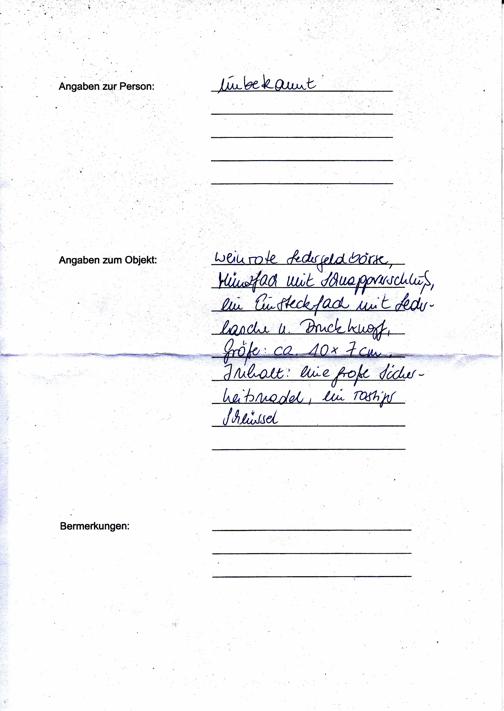 Angaben zur Person:
unbekannt
Angaben zum Objekt:
weinrote Ledergeldbörse,
Münzfach mit Schnappverschluß,
ein Einsteckfach mit Leder-
lasche u. Druckknopf,
Größe: ca. 10 x 7 cm
Inhalt: eine große Sicher-
heitsnadel, ein rostiger
Schlüssel
Bermerkungen: